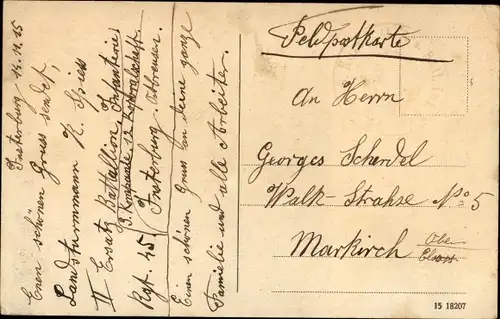 Insterburg 14.11.15
Enen schönen Gruss sendet,
Landsturmmann K. Spiess
II Ersatz Battallion, Infanterie
3. Kompanie 12 Korporalschaft
Rgt. 45, Insterburg Ostpreusen
Einen schönen Gruss an deine ganze
Familie und alle Arbeiter.
Feldpostkarte
An Herrn
Georges Scherdel
Walk-Strahse No 5
Markirch Ober
Elsass
15 18207